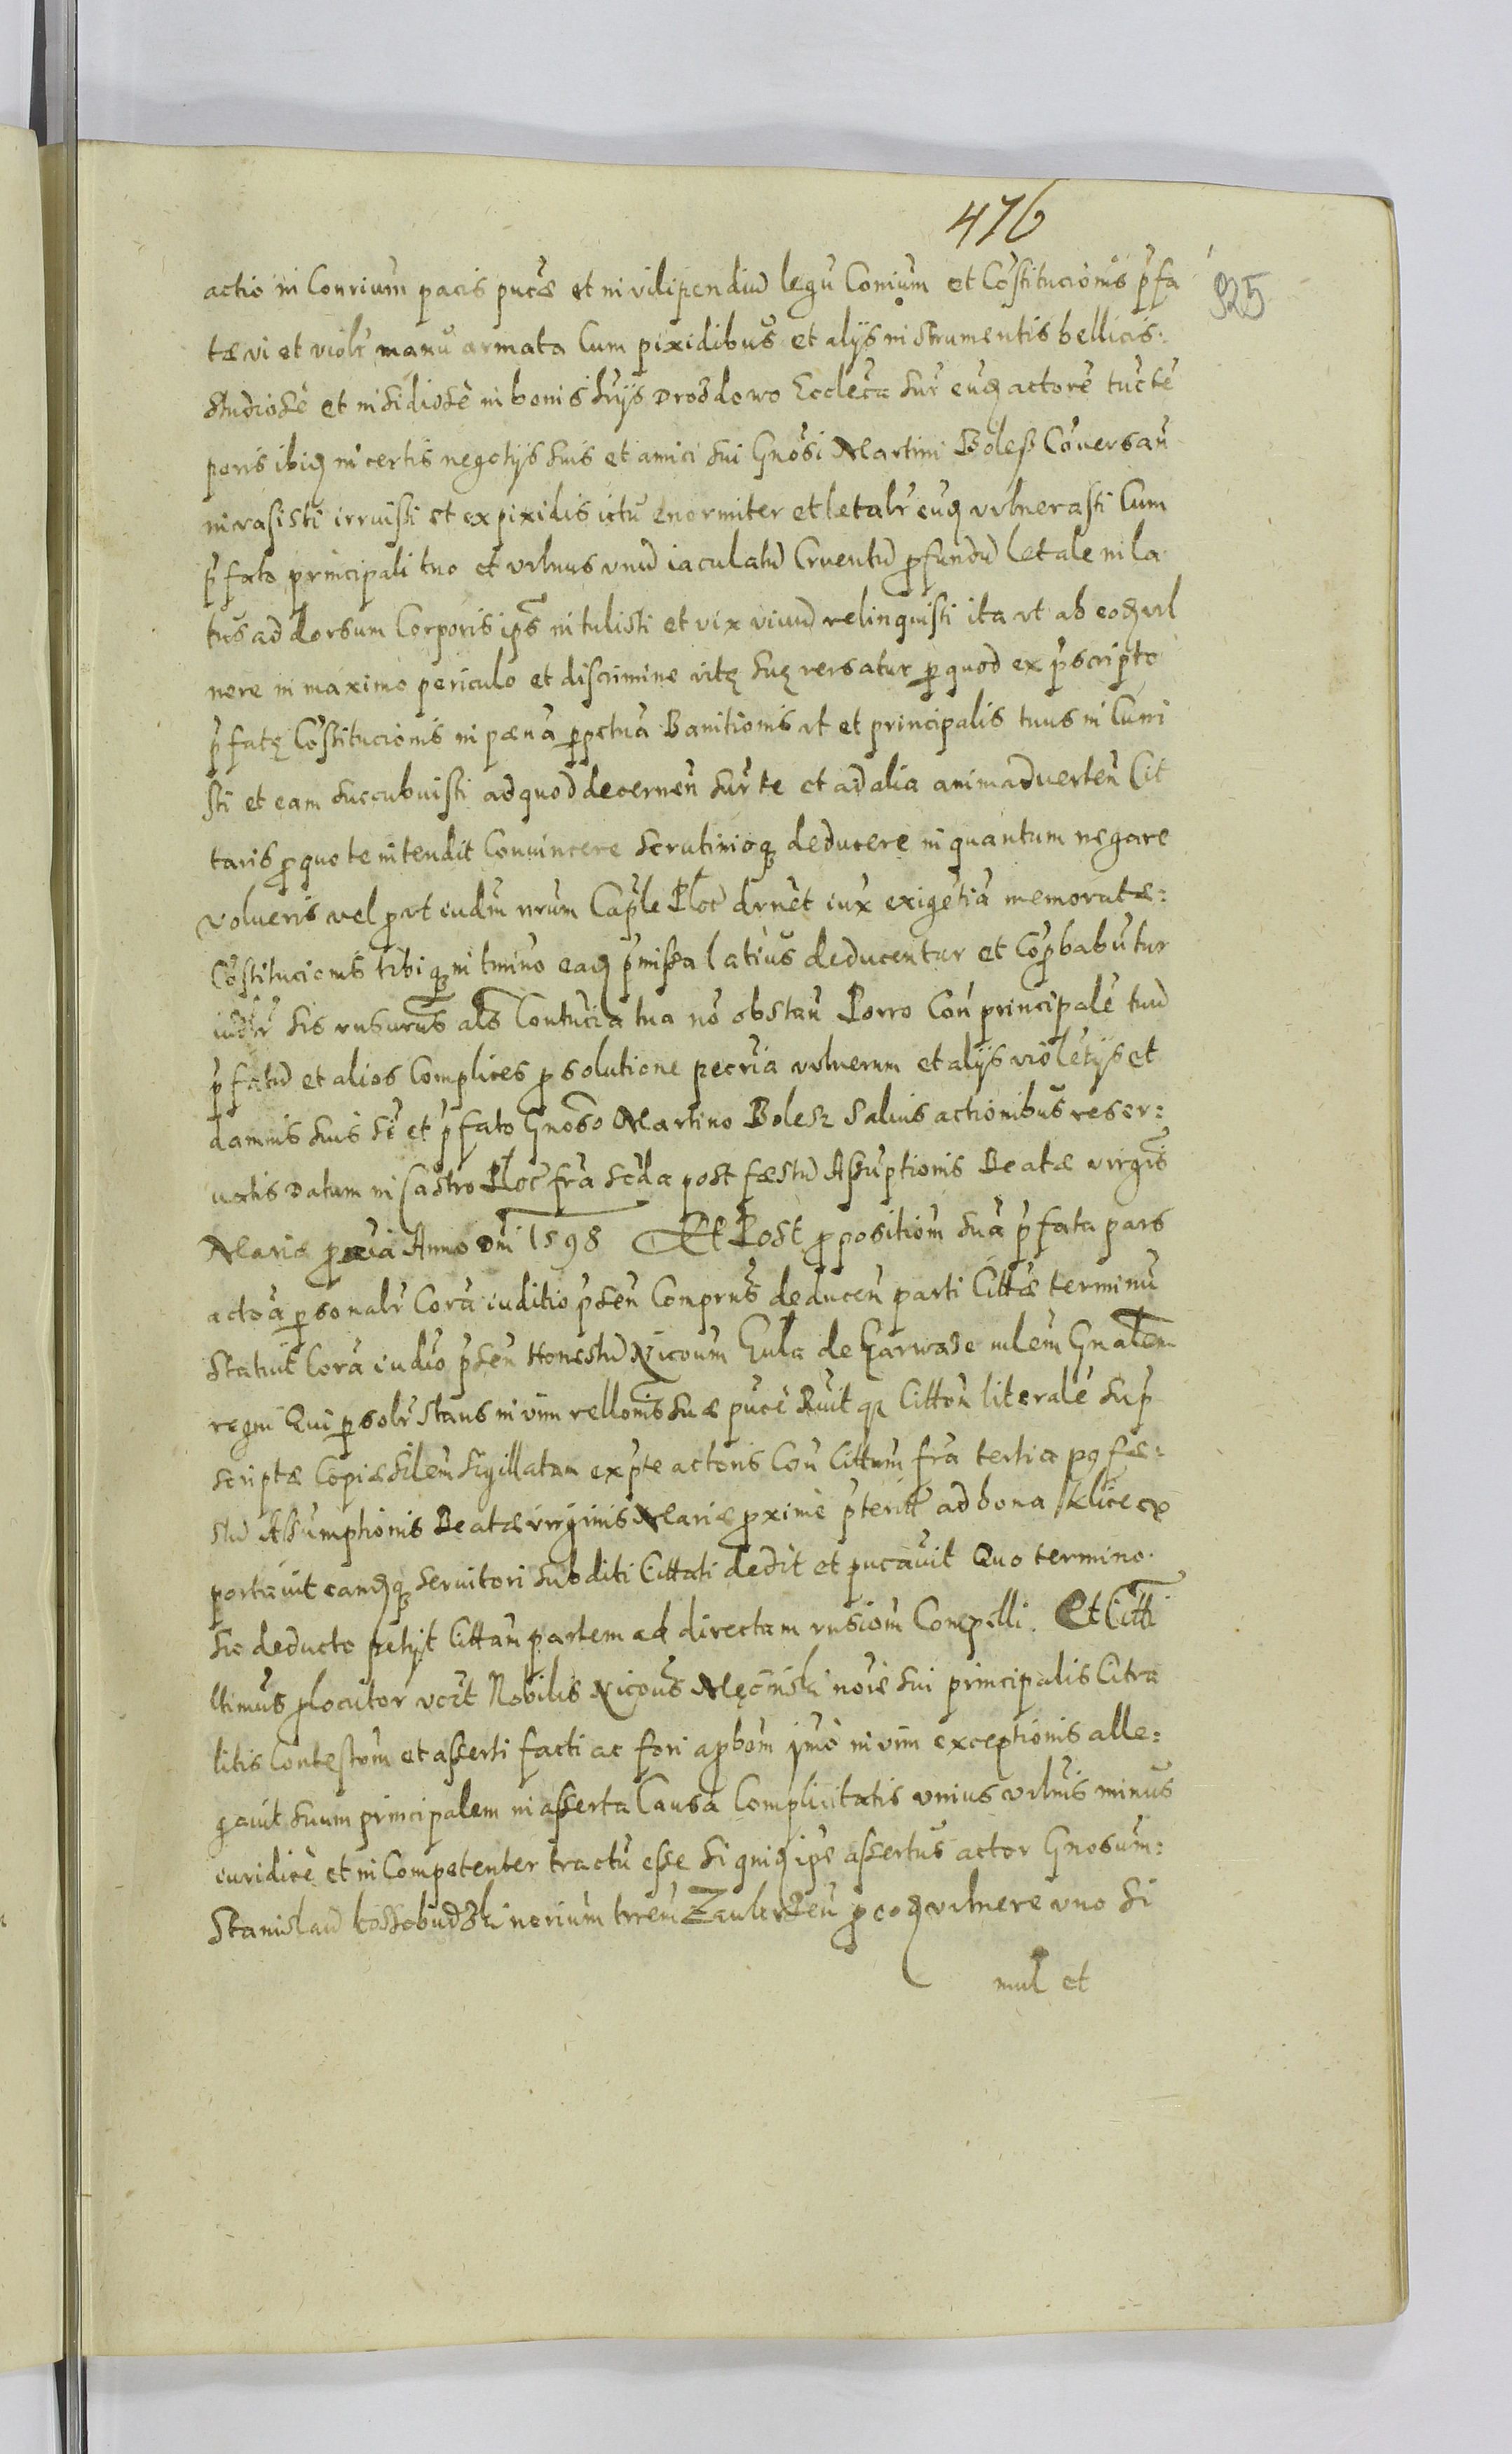 476
925
actio in Conrium pacis pucæ et in vilipendiu legu Conium et Costitucionis p̄fa
tæ vi et violr manu armata Cum pixidibus et alijs instrumentis bellicis:
studiose et insidiose in bonis suijs Drosdowo Ecclca sur eug actore tucte
poris ibig in certis negotijs suis et amici sui Gnosi Martini Bolesz Conversan
invasisti irruisti et ex pixidis ictu enormiter et letalr eug vulnerasti Cum
p̄fato principali tuo et vulnus vnu iaculatu Cruentu profundu letale in la
tus ad dorsum Corporis ips intulisti et vix vivu relinquisti ita vt ab eog vul
nere in maximo periculo et discrimine vitę suę versatur p quod ex p̄scripto
p̄fatę Costitucionis in pæna ppetua Banitionis vt et principalis tuus in Curri
sti et eam succubuisti ad quod decernen sur te et ad alia animadverten Cit
taris pro quo te intendit Convincere scrutinioq deducere in quantum negare
volueris vel prvt iudm nrum Caple Ploc drnet iux exigetia memoratæ:
Costitucionis tibiq in tmino eag p̄missa latius deducentur et Coprbabutur
iudr sis rnsurus als Contucia tua no obstan Porro Con principale tuu
p̄fatu et alios Complices pro solutione pecria vulnerum et alijs violetijs et
damnis suis se et p̄fato Gnoso Martino Bolesz salvis actionibus reser:
vatis Datum in Castro Ploc fra scda post fæstu Assuptionis Beatæ virgis
Maria proxia Anno Dni 1598 Et Post propositiom sua p̄fata pars
actoa psonalr Cora iuditio p̄sen Comprns deducen parti Cittæ terminu
statuit Cora iudio p̄sen Honestu Nicoum Gula de Garwaze mlem Gnalem
regni Qui psolr stans in vim rellonis suæ puce Ruit qz Citton literale sup
scriptæ Copiæ silem sigillatam ex pte actoris Con Cittum fra tertia pq fæ:
stu Assumptionis Beatæ virginis Mariæ proxime p̄terit ad bona Klice ex
portavit eamgq servitori subditi Cittati dedit et pucavit Quo termino
sic deducto petijt Cittam partem ad directam rnsiom Compelli. Et Citti
ltimus prlocutor vert Nobilis Nicous Męcinski noie sui principalis Citra
litis Contestom et asserti facti ac fori aprbom imo in vim exceptionis alle:
gavit suum principalem in asserta Causa Complicitatis vnius vulnis minus
iuridice et in Competenter tractu esse si gnig ipe assertus actor Gnosum:
Stanislau Kossobudzki nerium trren Zaukrzen pro eog vulnere uno si
mul et